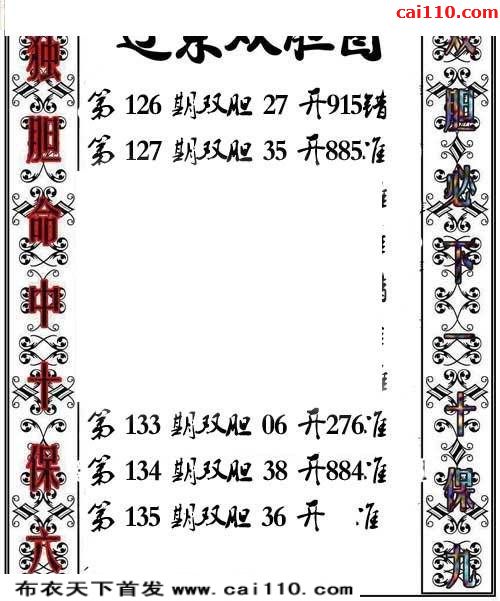 cai110.com
双胆图
第 126 期双胆 27 开915错
第 127 期双胆 35 开885.准
第 133 期双胆 06 开276.准
第 134 期双胆 38 开884.准
第 135 期双胆 36 开 准
独胆命中十保六
双胆必下一十保九
布衣天下首发 www.cai110.com